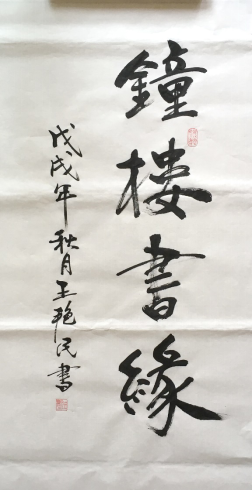 鐘樓書緣
戊戌年秋月王艳民書